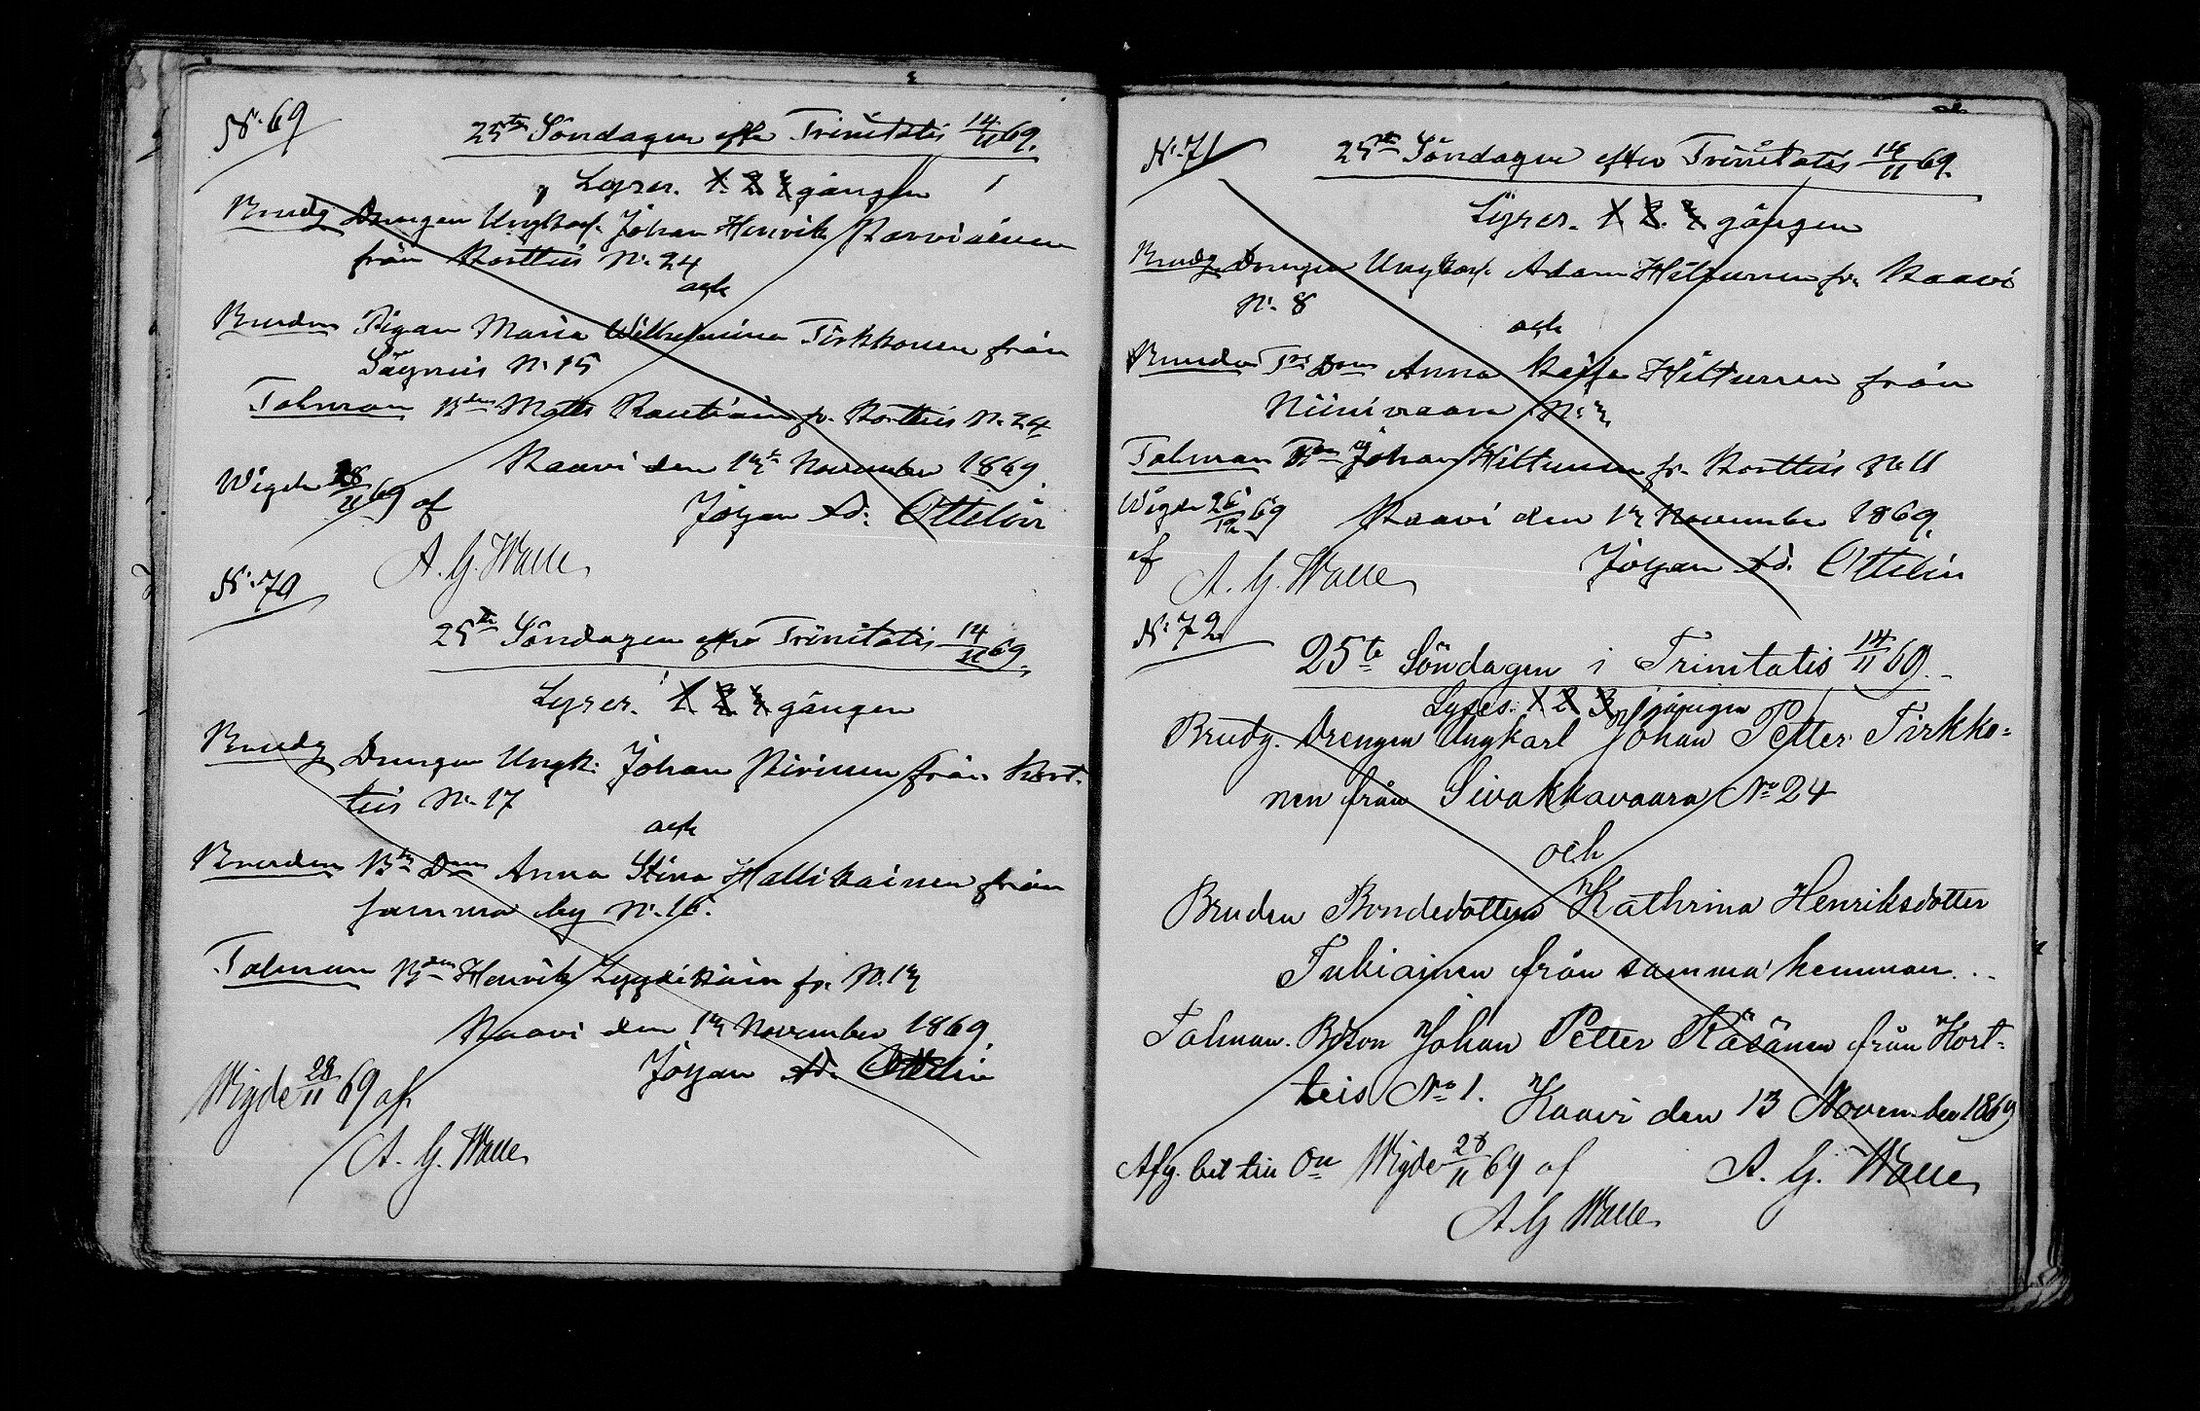 N:o 69
25te Söndagen efter Trinitatis 14/11 69.
Lyses. 1. 2. 3 gången
Brudg Drengen Ungkarl. Johan Henrik Karviainen
från Kortteis N:o 24
och
Bruden Pigan Maria Wilhelmina Tirkkonen från
N:o 15
Talman Bden Matts Rautiain fr. Kortteis N:o 24
Kaavi den 13 November 1869.
Wigde 28/11 69 af
Johan Ad: Ottelin
A. G. Walle
N:o 70
25te Söndagen efter Trinitatis 14/11 69.
Lyses. 1. 2. 3 gången
Brudg Drengen Ungk: Johan Hirvinen från Kort-
teis N:o 17
och
Bruden Bde Dottren Anna Stina Hallikainen från
samma by N:o 16.
Talman Bden Henrik Lyydikäin fr. N:o 13
Kaavi den 13 November 1869
Johan Ad. Ottelin
Wigde 28/11 69 af
A. G. Walle
N:o 71
25te Söndagen efter Trinitatis 14/11 69.
Lyses. 1 2. 3 gången
Brudg Drengen Ungkarl. Adam Hiltunen fr. Kaavi
N:o 8
och
Bruden Anna Kaisa Hiltunen från
Niinivaara N:o 3
Talman Johan Hiltunen fr. Kortteis N:o 11
Wigde 26/12 69
Kaavi den 13 November 1869.
af
A. G. Walle
Johan Ad. Ottelin
N:o 72
25te Söndagen i Trinitatis 14/11 69.
Lyses: 1 2 3 gången
Brudg. Drengen Ungkarl Johan Petter Tirkko=
nen från Sivakkavaara No 24
och
Bruden Bondedottren Kathrina Henriksdotter
Tukiainen från samma hemman...
Talman. Bdson Johan Petter Räsänen från Kort=
teis No 1. Kaavi den 13 November 1869
Afg. bet till On Wigde 28/11 69 af A. G. Walle
A G Walle